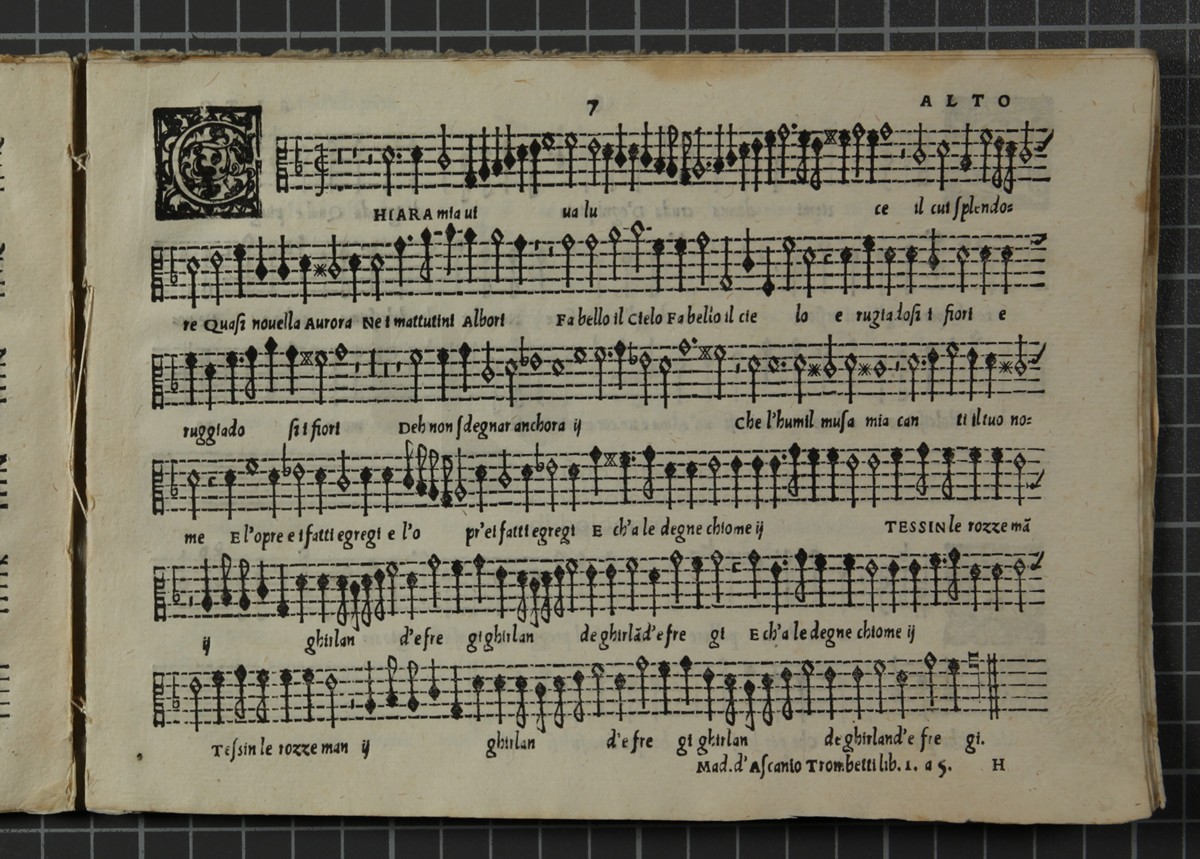 7 ALTO
CHIARA mia ui ua lu ce il cui splendo=
re Quasi nouella Aurora Ne i mattutini Albori Fa bello il Cielo Fa bello il cie lo e rugiadosi i fiori e
ruggiado si i fiori Deh non sdegnar anchora ij Che l'humil musa mia can ti il tuo no=
me E l'opre e i fatti egregi e l'o pr'ei fatti egregi E ch'a le degne chiome ij TESSIN le rozze mā
ij ghirlan d'e fre gi ghirlan de ghirlād'e fre gi E ch'a le degne chiome ij
Tessin le rozze man ij ghirlan d'e fre gi ghirlan de ghirland'e fre gi.
Mad. d'Ascanio Trombetti lib. 1. a 5. H